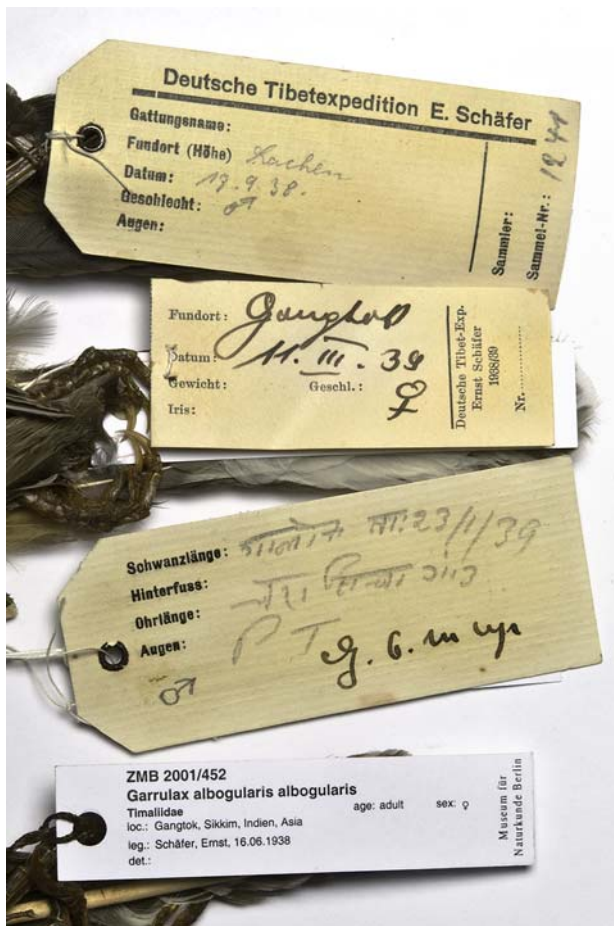 Deutsche Tibetexpedition E. Schäfer
Gattungsname:
Fundort (Höhe) Lachen
Datum: 17.9.38.
Geschlecht: ♂
Augen:
Sammler:
Sammel-Nr.: 1241
Fundort: Gangtok
Datum: 11. III. 39
Gewicht: Geschl.: ♀
Iris:
Deutsche Tibet-Exp.
Ernst Schäfer
1938/39
Nr.
Schwanzlänge: ता: 23/1/39
Hinterfuss:
Ohrlänge:
Augen: P T
♂
ZMB 2001/452
Garrulax albogularis albogularis
Timaliidae age: adult sex: ♀
loc.: Gangtok, Sikkim, Indien, Asia
leg.: Schäfer, Ernst, 16.06.1938
det.:
Museum für
Naturkunde Berlin